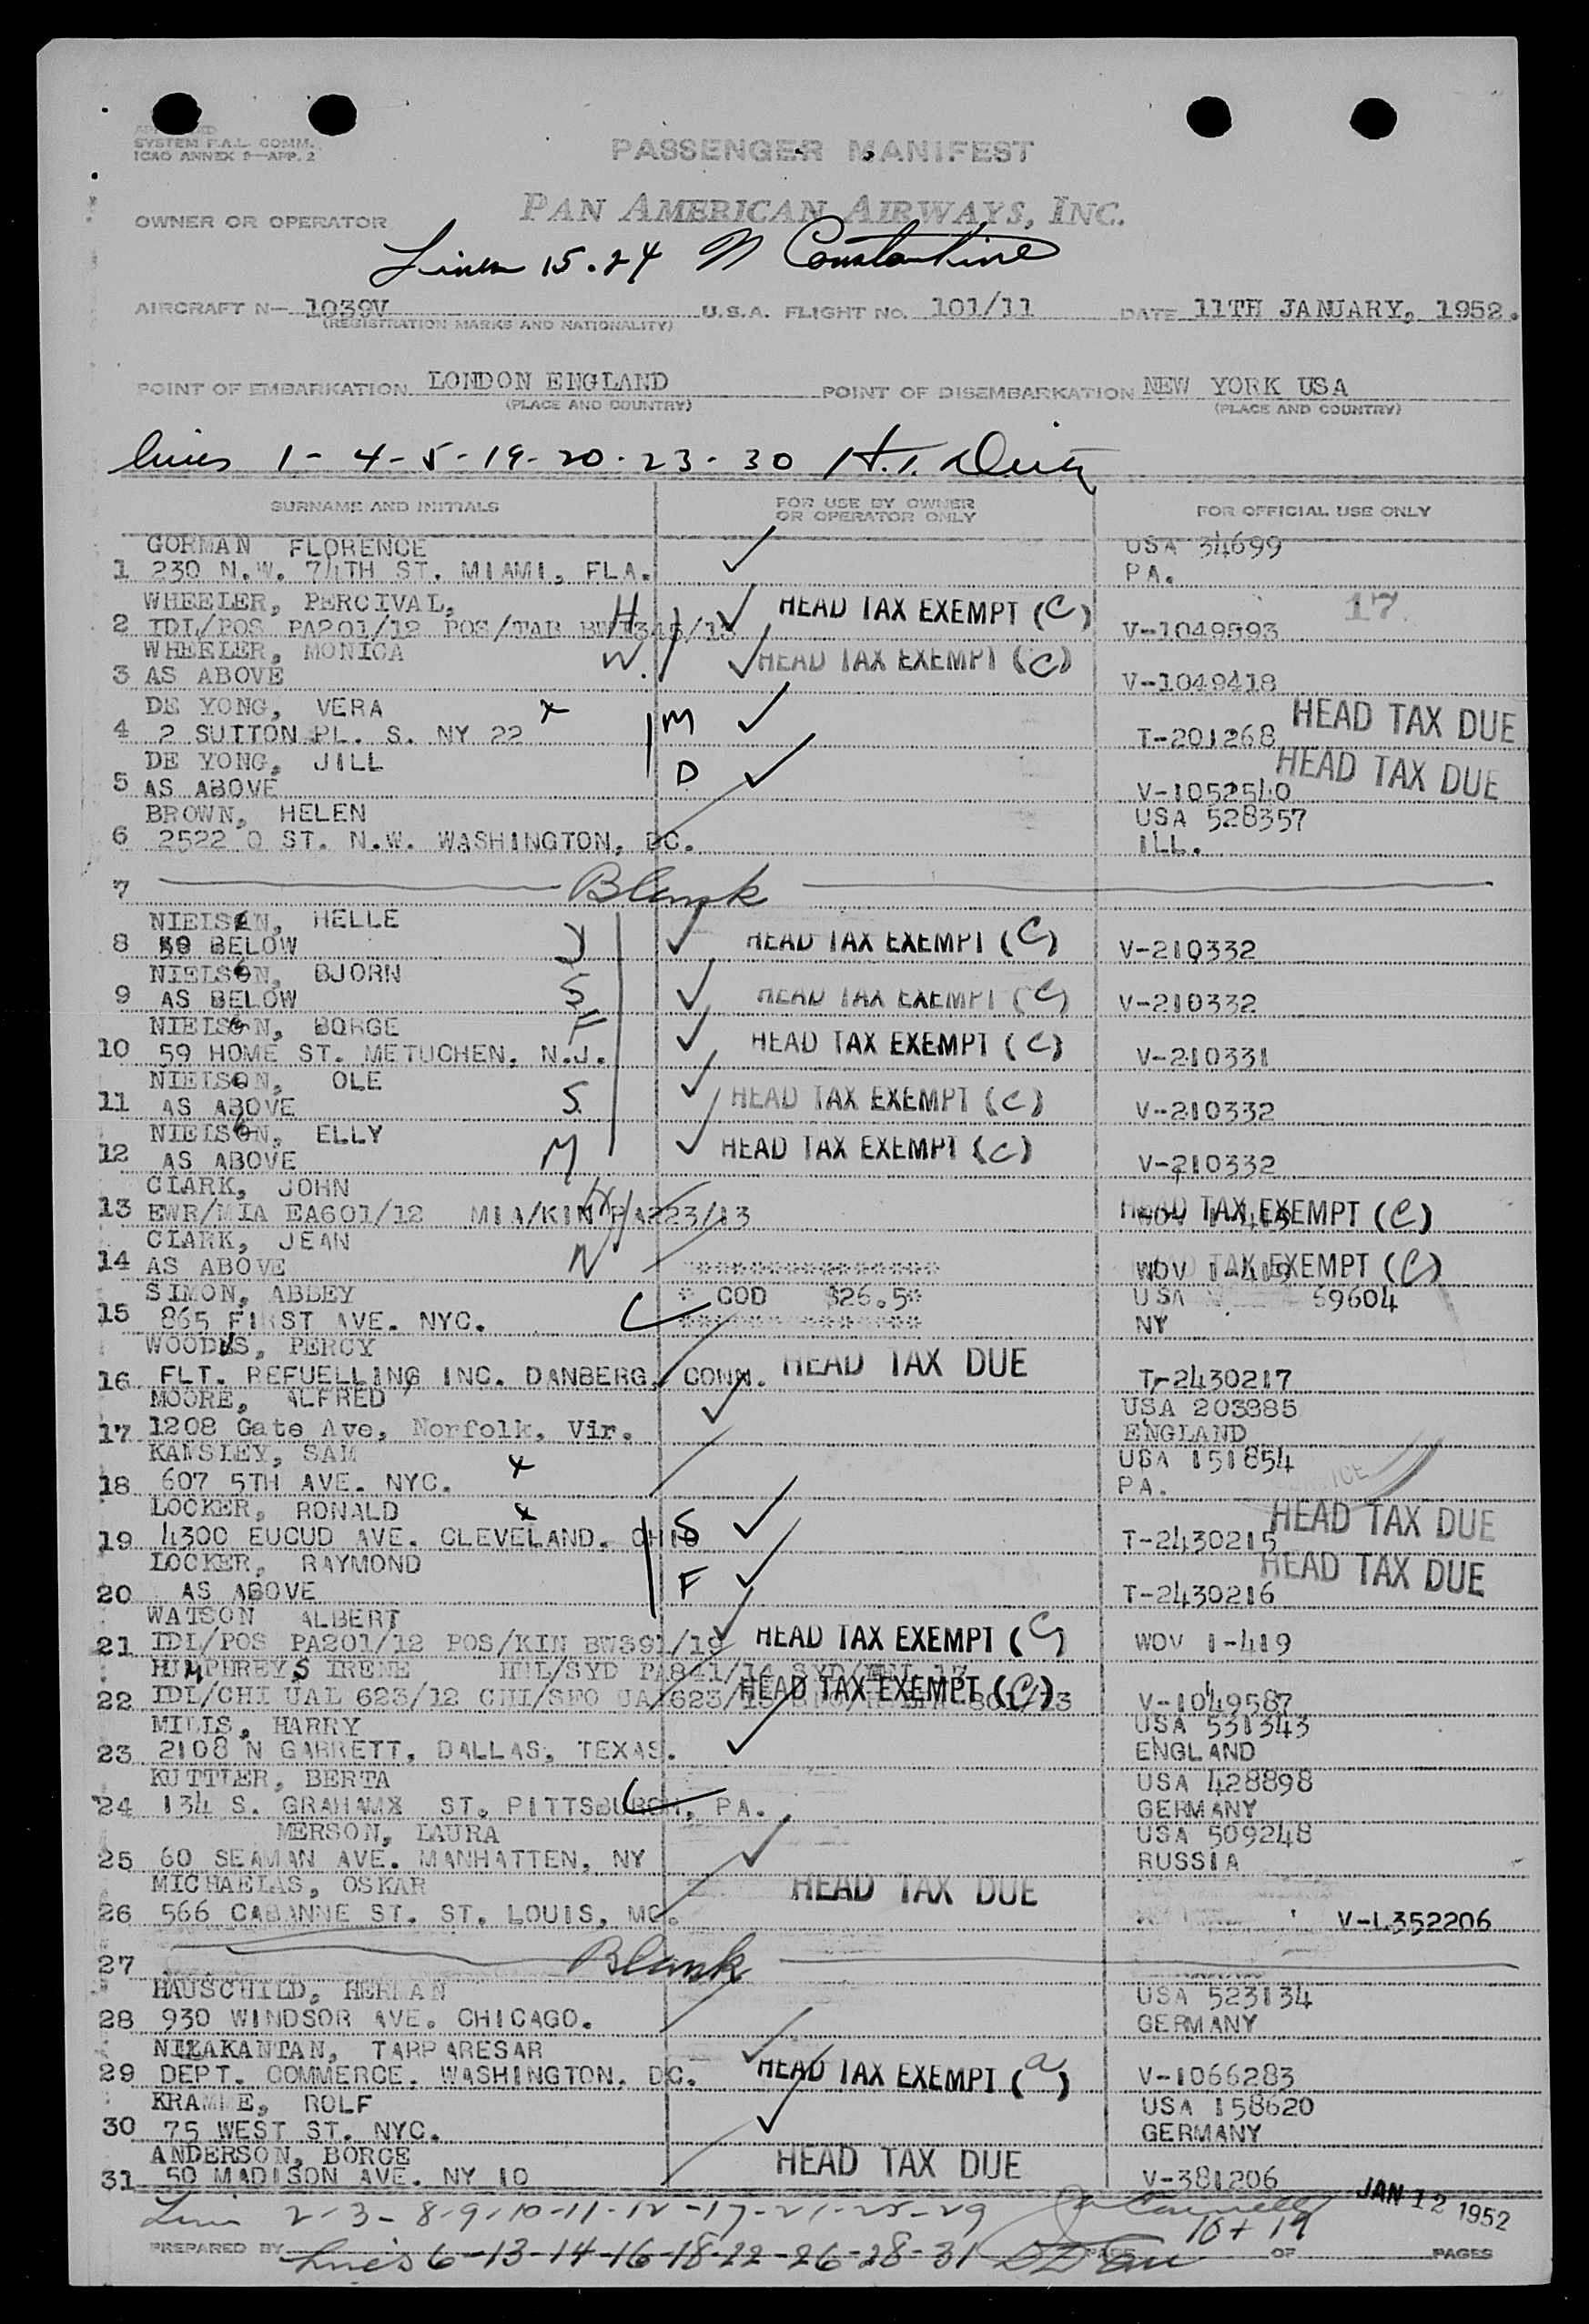 SYSTEM F.A.L. COMM.
ICAO ANNEX 9—APP. 2
PASSENGER MANIFEST
OWNER OR OPERATOR PAN AMERICAN AIRWAYS, INC.
Lines 15.24 Constantine
AIRCRAFT N— 1039V U.S.A. FLIGHT NO. 101/11 DATE 11TH JANUARY, 1952.
(REGISTRATION MARKS AND NATIONALITY)
POINT OF EMBARKATION LONDON ENGLAND POINT OF DISEMBARKATION NEW YORK USA
(PLACE AND COUNTRY) (PLACE AND COUNTRY)
lines 1-4-5-19-20-23-30
SURNAME AND INITIALS FOR USE BY OWNER OR OPERATOR ONLY FOR OFFICIAL USE ONLY
GORMAN FLORENCE USA 34699
1 230 N.W. 74TH ST. MIAMI, FLA. PA.
WHEELER, PERCIVAL, H HEAD TAX EXEMPT (C) 17
2 IDL/POS PA201/12 POS/TAB V-1049593
WHEELER, MONICA W. HEAD TAX EXEMPT (C)
3 AS ABOVE V-1049418
DE YONG, VERA x M HEAD TAX DUE
4 2 SUTTON PL. S. NY 22 T-201268
DE YONG, JILL D HEAD TAX DUE
5 AS ABOVE V-1052540
BROWN, HELEN USA 528357
6 2522 Q ST. N.W. WASHINGTON, DC. ILL.
7 Blank
NIELSEN, HELLE
8 59 BELOW HEAD TAX EXEMPT (C) V-210332
NIELSEN, BJORN
9 AS BELOW S HEAD TAX EXEMPT (C) V-210332
NIELSEN, BORGE F
10 59 HOME ST. METUCHEN, N.J. HEAD TAX EXEMPT (C) V-210331
NIELSEN, OLE
11 AS ABOVE S. HEAD TAX EXEMPT (C) V-210332
NIELSEN, ELLY
12 AS ABOVE M HEAD TAX EXEMPT (C) V-210332
CLARK, JOHN
13 EWR/MIA EA601/12 MIA/KIN PA223/13 HEAD TAX EXEMPT (C)
CLARK, JEAN
14 AS ABOVE W *************** WOV 1-419 TAX EXEMPT (C)
SIMON, ABBEY * COD $26.5* USA 69604
15 865 FIRST AVE. NYC. *************** NY
WOODS, PERCY
16 FLT. REFUELLING INC. DANBERG, CONN. HEAD TAX DUE T-2430217
MOORE, ALFRED USA 203885
17 1208 Gate Ave, Norfolk, Vir. ENGLAND
KANSLEY, SAM x USA 151854
18 607 5TH AVE. NYC. PA.
LOCKER, RONALD x S HEAD TAX DUE
19 4300 EUCUD AVE. CLEVELAND, OHIO T-2430215
LOCKER, RAYMOND F HEAD TAX DUE
20 AS ABOVE T-2430216
WATSON ALBERT
21 IDL/POS PA201/12 POS/KIN BW391/19 HEAD TAX EXEMPT (C) WOV 1-419
HUMPHREYS IRENE HNL/SYD PA841/14
22 IDL/CHI UAL 623/12 CHI/SFO HEAD TAX EXEMPT (C) V-1049587
MILLS, HARRY USA 531343
23 2108 N GARRETT, DALLAS, TEXAS. ENGLAND
KUTTLER, BERTA USA 428898
24 134 S. GRAHAMX ST. PITTSBURGH, PA. GERMANY
MERSON, LAURA USA 509248
25 60 SEAMAN AVE. MANHATTEN, NY RUSSIA
MICHAELAS, OSKAR HEAD TAX DUE
26 566 CABANNE ST. ST. LOUIS, MO. V-L352206
27 Blank
HAUSCHILD, HERMAN USA 523134
28 930 WINDSOR AVE. CHICAGO. GERMANY
NILAKANTAN, TARPARESAR
29 DEPT. COMMERCE. WASHINGTON, DC. HEAD TAX EXEMPT (a) V-1066283
KRAMME, ROLF USA 158620
30 75 WEST ST. NYC. GERMANY
ANDERSON, BORGE HEAD TAX DUE
31 50 MADISON AVE. NY 10 V-381206
JAN 12 1952
2-3-8-9-10-11-12-17-21-25-29 10+19
PREPARED BY Lines 6-13-14-16-18-22-26-28-31 PAGE OF PAGES